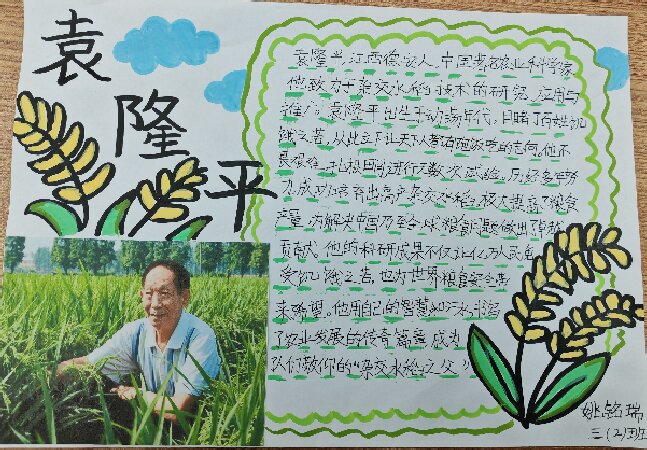 袁隆平
袁隆平,江西德安人,中国著名农业科学家
他致力于杂交水稻技术的研究、应用与
推广。袁隆平出生于动荡年代,目睹了百姓饥
饿之苦,从此立下让天下人都有饱饭吃的志向。他不
畏艰难,扎根田间进行无数次试验。历经多年努
力,成功培育出高产杂交水稻,极大提高了粮食
产量,为解决中国乃至全球粮食问题做出了卓越
贡献。他的科研成果不仅让亿万人民免
受饥饿之苦,也为世界粮食安全带
来希望。他用自己的智慧和汗水书写
了农业发展的传奇篇章,成为
人们敬仰的“杂交水稻之父”
姚铭瑞
三(2)班